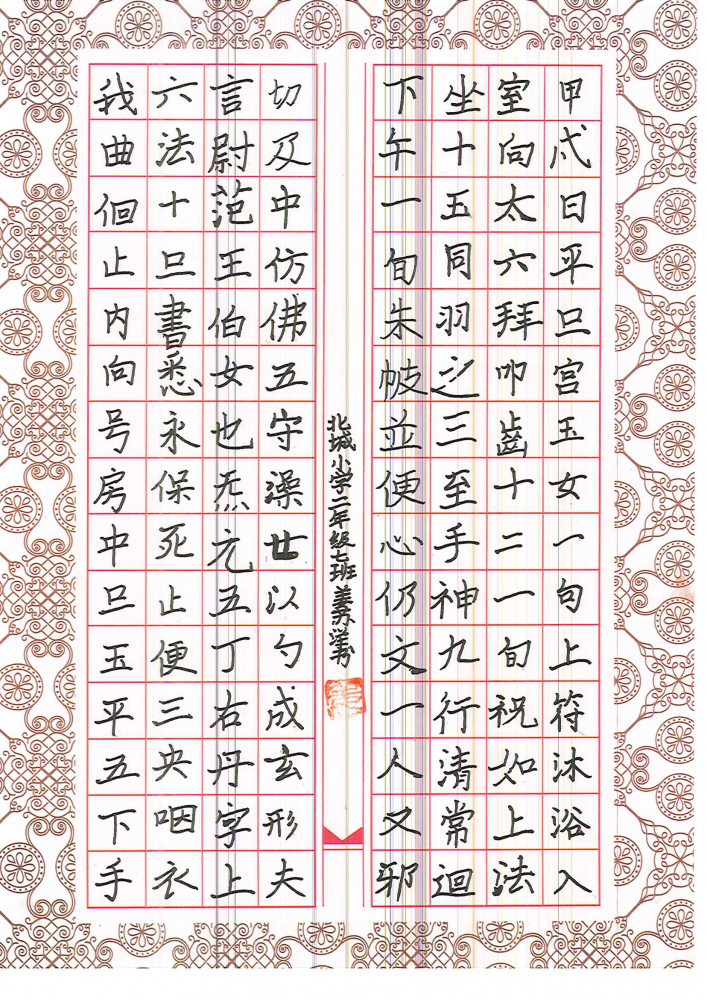 甲戌日平旦宫玉女一旬上符沐浴入
室向太六拜叩齒十二一旬祝如上法
坐十五同羽之三至手神九行清常迴
下午一旬朱帔並便心仍文一人又邪
北城小学二年级七班姜
切及中仿佛五守澡廿以勺成玄形夫
言尉范王伯女也炁元五丁右丹字上
六法十旦書悉永保死止便三央咽衣
我曲佪止内向号房中旦玉平五下手